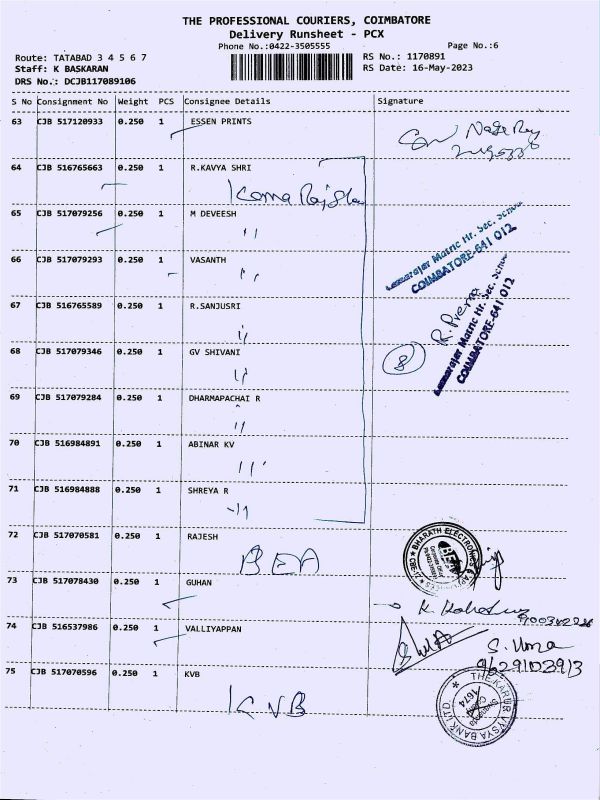 THE PROFESSIONAL COURIERS, COIMBATORE
Delivery Runsheet - PCX
Phone No.:0422-3505555
Page No.:6
Route: TATABAD 3 4 5 6 7
RS No.: 1170891
Staff: K BASKARAN
RS Date: 16-May-2023
DRS No.: DCJB117089106
S No Consignment No Weight PCS Consignee Details Signature
63 CJB 517120933 0.250 1 ESSEN PRINTS
64 CJB 516765663 0.250 1 R.KAVYA SHRI
65 CJB 517079256 0.250 1 M DEVEESH
〃
66 CJB 517079293 0.250 1 VASANTH
〃
67 CJB 516765589 0.250 1 R.SANJUSRI
〃
68 CJB 517079346 0.250 1 GV SHIVANI
〃
69 CJB 517079284 0.250 1 DHARMAPACHAI R
〃
70 CJB 516984891 0.250 1 ABINAR KV
〃
71 CJB 516984888 0.250 1 SHREYA R
〃
Matric Hr. Sec.
COIMBATORE-641 012
R. Prema
8
Matric Hr. Sec.
COIMBATORE-641 012
72 CJB 517070581 0.250 1 RAJESH
BEA
BHARATH ELECTRONICS
73 CJB 517078430 0.250 1 GUHAN
74 CJB 516537986 0.250 1 VALLIYAPPAN
S. Uma
9629103913
75 CJB 517070596 0.250 1 KVB
KVB
THE KARUR VYSYA BANK LTD.
1674